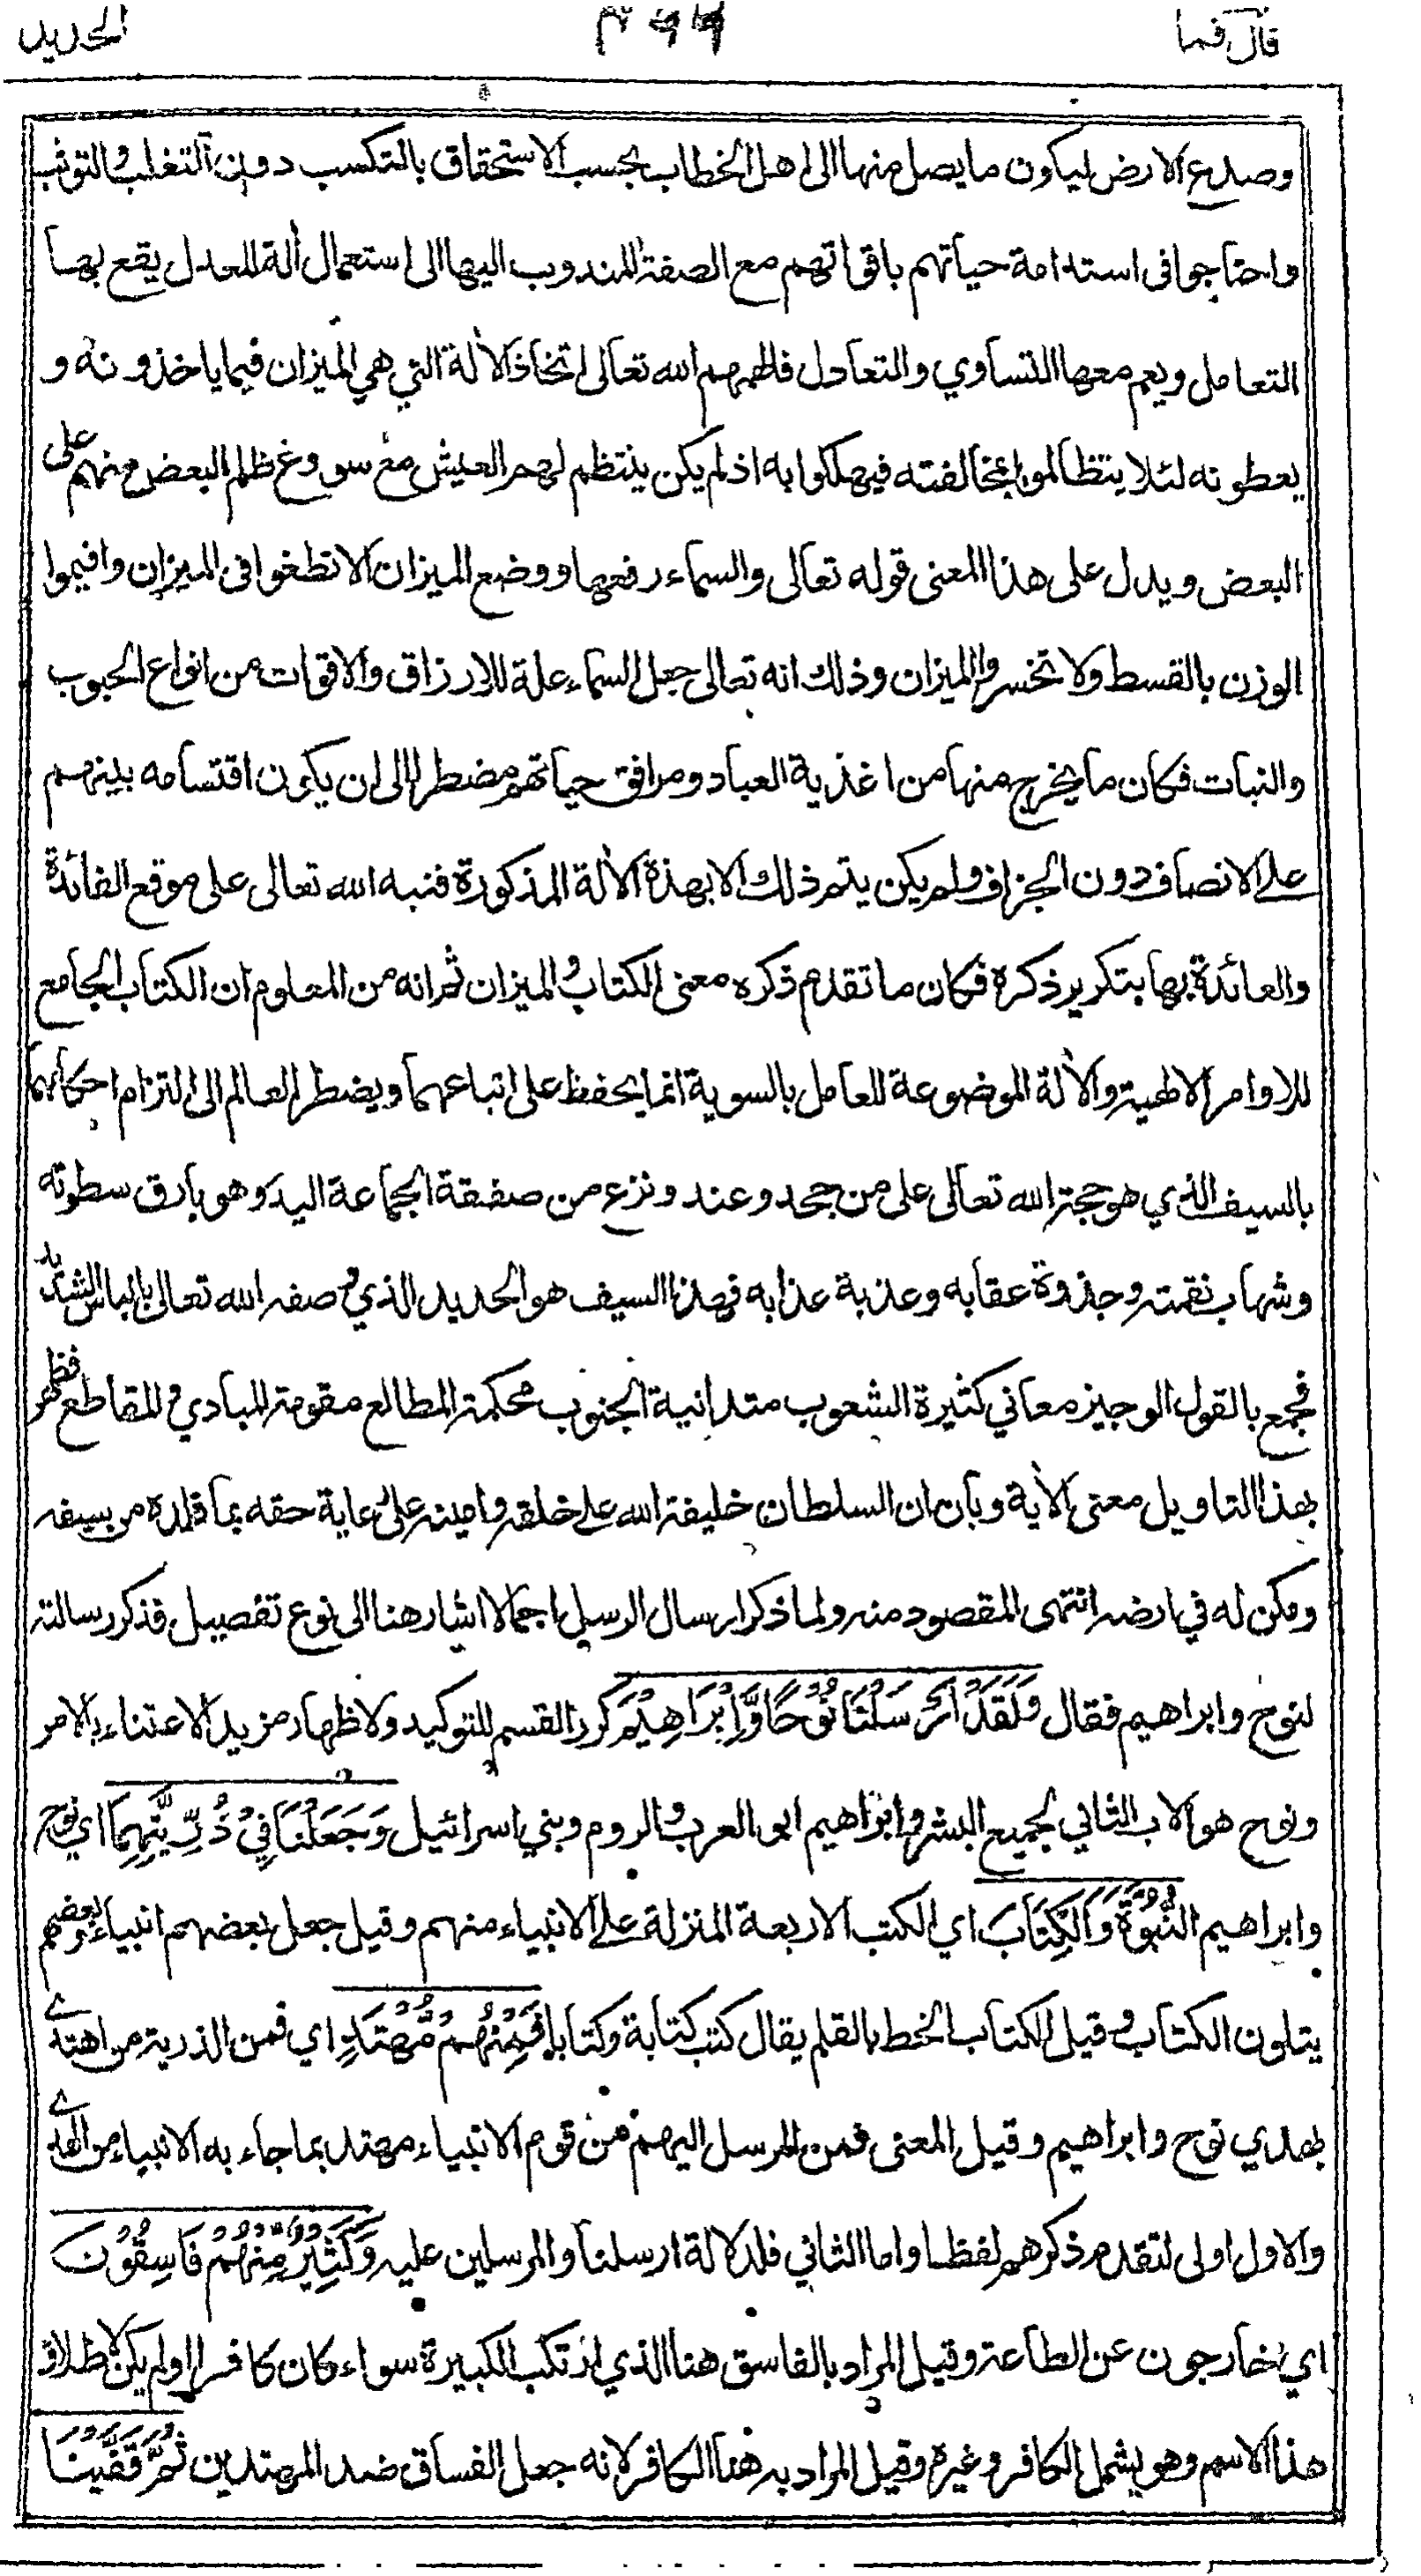 قال فما الحديد
وصدع الارض ليكون ما يصل منها الى اهل الخطاب بحسب الاستحقاق بالتكسب دون التغلب والتوثب
واحتاجوا في استدامة حياتهم باقواتهم مع الصفة المندوب اليها الى استعمال ألة للعدل يقع بها
التعامل ويعم معها التساوي والتعادل فالهمهم الله تعالى اتخاذ الألة التي هي الميزان فيما ياخذونه و
يعطونه لئلا يتظالموا بمخالفته فيهلكوا به اذ لم يكن ينتظم لهم العيش مع سوغ ظلم البعض منهم على
البعض ويدل على هذا المعنى قوله تعالى والسماء رفعها ووضع الميزان الا تطغوا في الميزان واقيموا
الوزن بالقسط ولا تخسروا الميزان وذلك انه تعالى جعل السماء علة للارزاق والاقوات من انواع الحبوب
والنبات فكان ما يخرج منها من اغذية العباد ومرافق حياتهم مضطرا الى ان يكون اقتسامه بينهم
على الانصاف دون الجزاف ولم يكن يتم ذلك الا بهذه الألة المذكورة فنبه الله تعالى على موقع الفائدة
والعائدة بها بتكرير ذكره فكان ما تقدم ذكره معنى الكتاب والميزان ثم انه من المعلوم ان الكتاب الجامع
للاوامر الالهية والألة الموضوعة للعامل بالسوية انما يحفظ على اتباعهما ويضطر العالم الى التزام احكامهما
بالسيف الذي هو حجة الله تعالى على من جحد وعند ونزع من صفقة الجماعة اليد وهو بارق سطوته
وشهاب نقمته وجذوة عقابه وعذبة عذابه فهذا السيف هو الحديد الذي وصفه الله تعالى بالباس الشديد
فجمع بالقول الوجيز معاني كثيرة الشعوب متدانية الجنوب محكمة المطالع مقومة المبادي والمقاطع فظهر
بهذا التاويل معنى الأية وبان ان السلطان خليفة الله على خلقه وامينه على رعاية حقه بما قلده من سيفه
ومكن له في ارضه انتهى المقصود منه ولما ذكر ارسال الرسل اجمالا اشار هنا الى نوع تفصيل فذكر رسالته
لنوح وابراهيم فقال وَلَقَدْ اَرْسَلْنَا نُوْحًا وَّاِبْرَاهِيْمَ كرر القسم للتوكيد ولاظهار مزيد الاعتناء بالامر
ونوح هو الاب الثاني لجميع البشر وابراهيم ابو العرب والروم وبني اسرائيل وَجَعَلْنَا فِيْ ذُرِّيَّتِهِمَا اي نوح
وابراهيم النُّبُوَّةَ وَالْكِتَابَ اي الكتب الاربعة المنزلة على الانبياء منهم وقيل جعل بعضهم انبياء وبعضهم
يتلون الكتاب وقيل الكتاب الخط بالقلم يقال كتب كتابة وكتابا فَمِنْهُمْ مُّهْتَدٍ اي فمن الذرية من اهتدى
بهدي نوح وابراهيم وقيل المعنى فمن المرسل اليهم من قوم الانبياء مهتد بما جاء به الانبياء من الهدى
والاول اولى لتقدم ذكرهم لفظا واما الثاني فلدلالة ارسلنا والمرسلين عليه وَكَثِيْرٌ مِّنْهُمْ فَاسِقُوْنَ
اي خارجون عن الطاعة وقيل المراد بالفاسق هنا الذي ارتكب الكبيرة سواء كان كافرا او لم يكن لاطلاق
هذا الاسم وهو يشمل الكافر وغيره وقيل المراد به هنا الكافر لانه جعل الفساق ضد المهتدين ثُمَّ قَفَّيْنَا